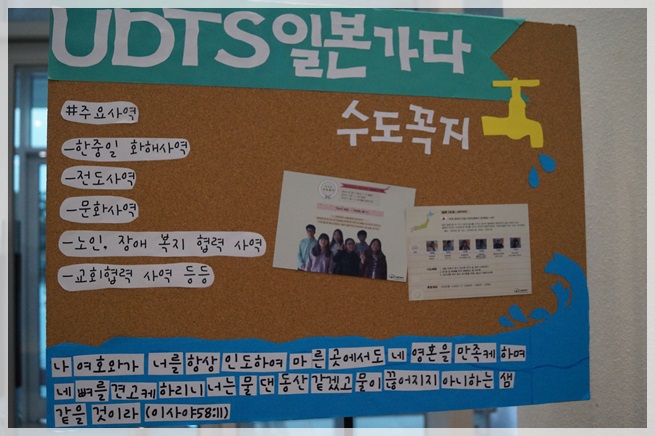 UDTS일본가다
수도꼭지
#주요사역
-한중일 화해사역
-전도사역
-문화사역
-노인, 장애 복지 협력 사역
-교회협력 사역 등등
나 여호와가 너를 항상 인도하여 마른 곳에서도 네 영혼을 만족케 하며
네 뼈를 견고케하리니 너는 물 댄 동산 같겠고 물이 끊어지지 아니하는 샘
같을 것이라 (이사야58:11)